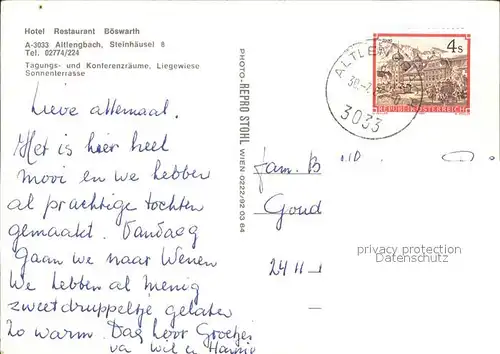 Hotel Restaurant Böswarth
A-3033 Altlengbach, Steinhäusel 8
Tel. 02774/224
Tagungs- und Konferenzräume, Liegewiese
Sonnenterrasse
Lieve allemaal.
Het is hier heel
mooi en we hebben
al prachtige tochten
gemaakt. Vandaag
Gaan we naar Wenen
We hebben al menig
zweetdruppeltje gelaten
Zo warm. Dag hoor Groetjes
va Wil en Hannie
PHOTO-REPRO STOHL WIEN 0222/92 03 64
ALTLENGB
3033
4s
REPUBLIK ÖSTERREICH
Fam. B
Goud
2411
privacy protection
Datenschutz